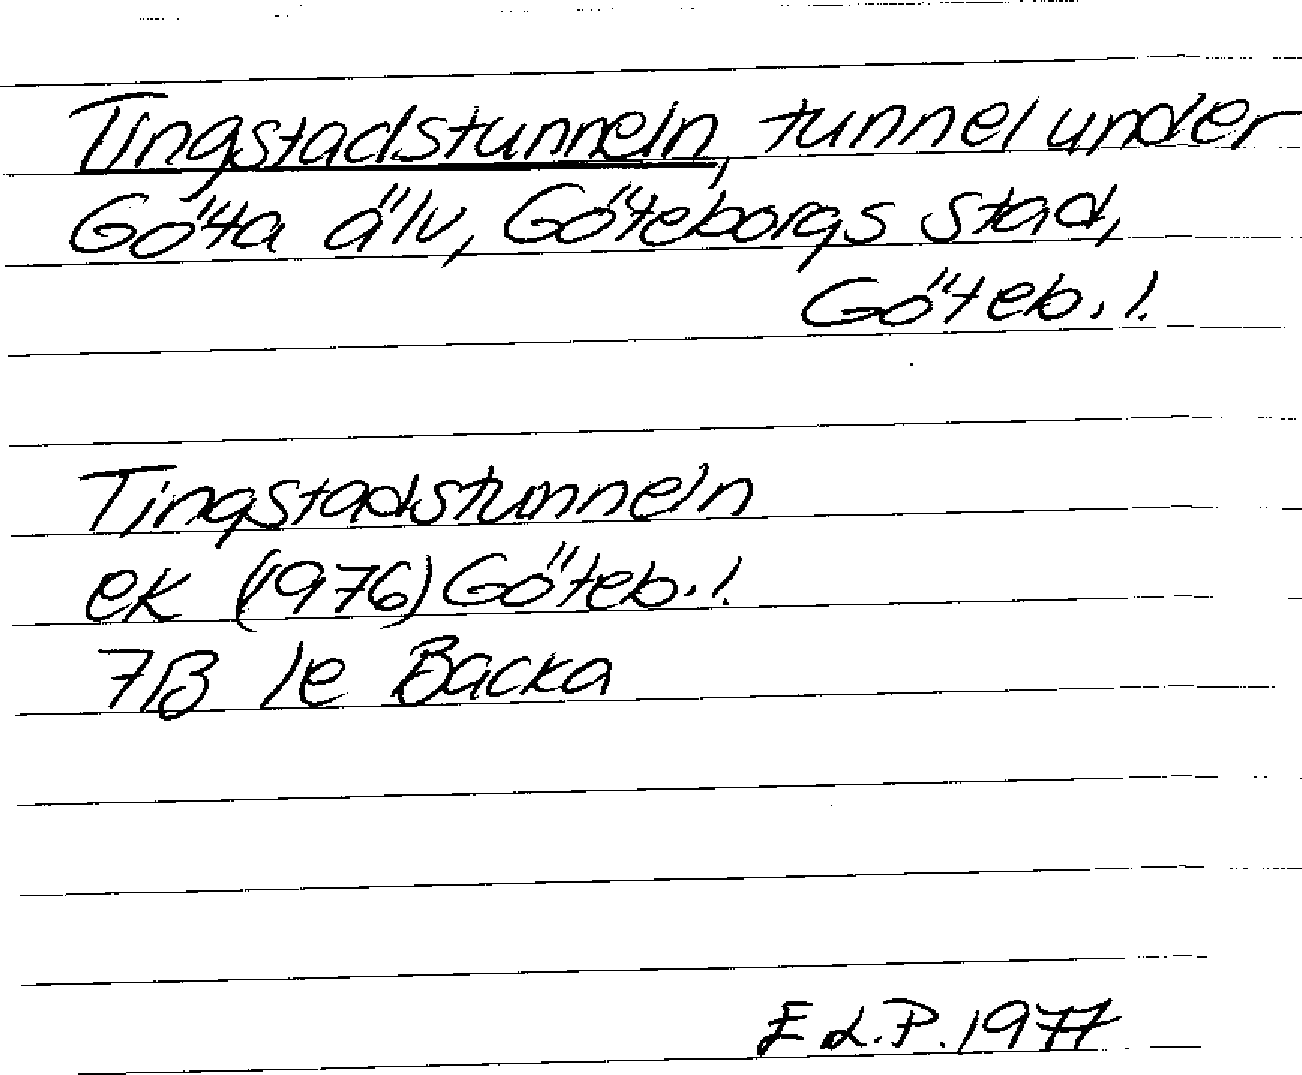 Tingstadstunneln, tunnel under
Göta älv, Göteborgs stad,
Göteb. l.
Tingstadstunneln
ek (1976) Göteb. l.
7B 1e Backa
E L. P. 1977